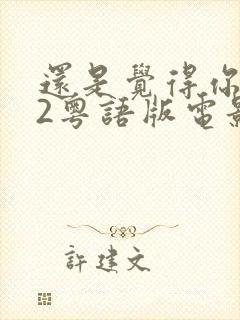 還是覺得你
2粵語版電影
許建文